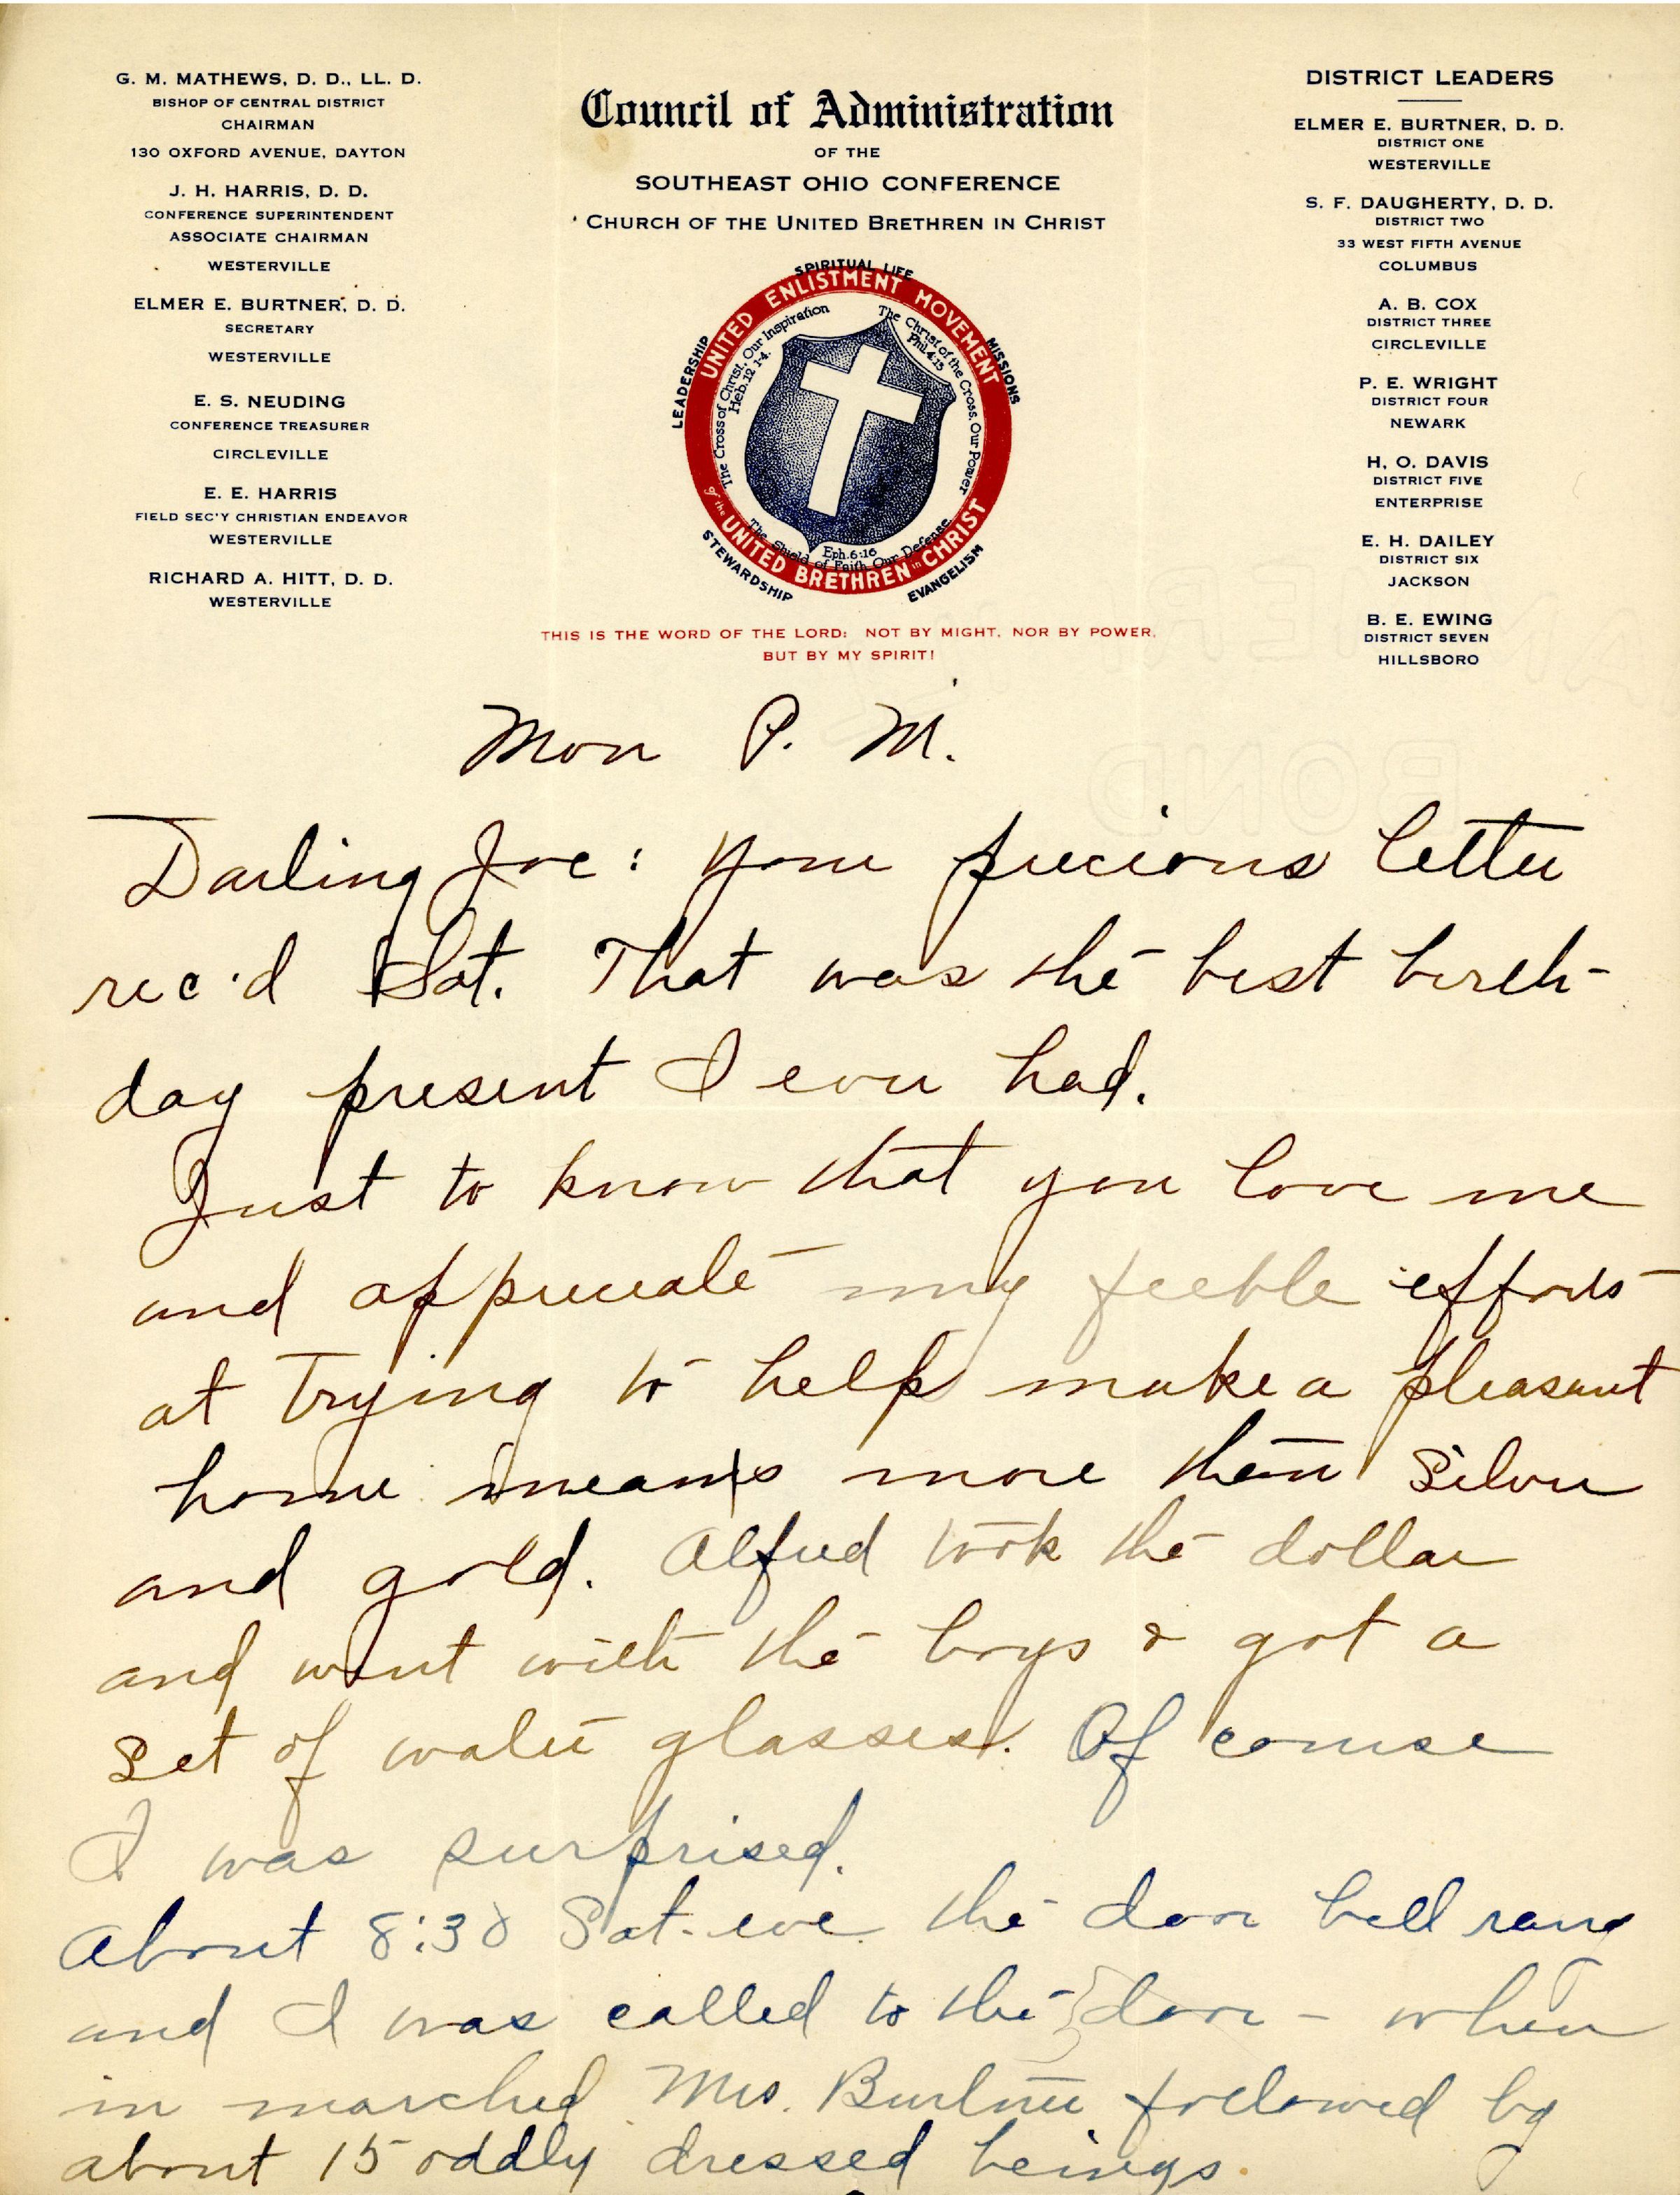 G. M. MATHEWS, D. D., LL. D.
BISHOP OF CENTRAL DISTRICT
CHAIRMAN
130 OXFORD AVENUE, DAYTON
J. H. HARRIS, D. D.
CONFERENCE SUPERINTENDENT
ASSOCIATE CHAIRMAN
WESTERVILLE
ELMER E. BURTNER, D. D.
SECRETARY
WESTERVILLE
E. S. NEUDING
CONFERENCE TREASURER
CIRCLEVILLE
E. E. HARRIS
FIELD SEC'Y CHRISTIAN ENDEAVOR
WESTERVILLE
RICHARD A. HITT, D. D.
WESTERVILLE
Council of Administration
OF THE
SOUTHEAST OHIO CONFERENCE
CHURCH OF THE UNITED BRETHREN IN CHRIST
SPIRITUAL LIFE
MISSIONS
EVANGELISM
STEWARDSHIP
LEADERSHIP
UNITED ENLISTMENT MOVEMENT
of the UNITED BRETHREN in CHRIST
The Cross of Christ, Our Inspiration
Heb. 12 1-4.
The Christ of the Cross, Our Power
Phil. 4:13
The Shield of Faith Our Defense
Eph. 6:16
THIS IS THE WORD OF THE LORD: NOT BY MIGHT, NOR BY POWER,
BUT BY MY SPIRIT!
DISTRICT LEADERS
ELMER E. BURTNER, D. D.
DISTRICT ONE
WESTERVILLE
S. F. DAUGHERTY, D. D.
DISTRICT TWO
33 WEST FIFTH AVENUE
COLUMBUS
A. B. COX
DISTRICT THREE
CIRCLEVILLE
P. E. WRIGHT
DISTRICT FOUR
NEWARK
H. O. DAVIS
DISTRICT FIVE
ENTERPRISE
E. H. DAILEY
DISTRICT SIX
JACKSON
B. E. EWING
DISTRICT SEVEN
HILLSBORO
Mon P. M.
Darling Joe: Your precious letter
rec'd Sat. That was the best birth-
day present I ever had.
Just to know that you love me
and appreciate my feeble efforts
at trying to help make a pleasant
home means more than silver
and gold. Alfred took the dollar
and went with the boys & got a
set of water glasses. Of course
I was surprised.
About 8:30 Sat. eve. the door bell rang
and I was called to the door - when
in marched Mrs. Burtner followed by
about 15 oddly dressed beings.